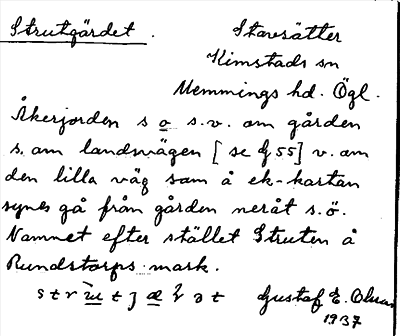 Strutgärdet.
Stavsätter
Kimstads sn
Memmings hd. Ögl.
Åkerjorden s o s.v. om gården
s. om landsvägen [ se § 55] v. om
den lilla väg som å ek-kartan
synes gå från gården neråt s.ö.
Namnet efter stället Struten å
Rundstorps mark.
Gustaf E. Olsson
1937